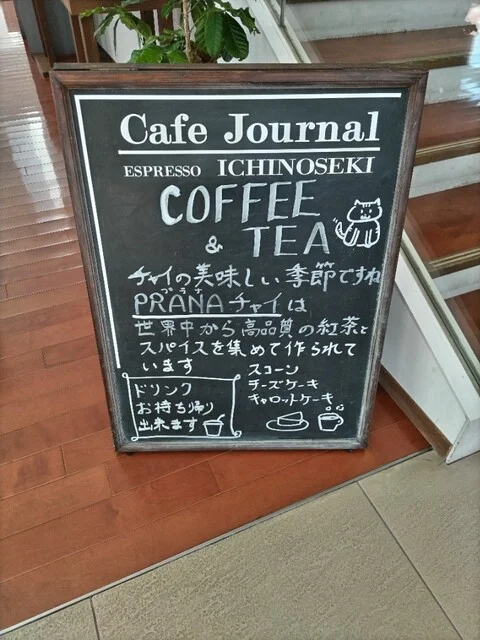 Cafe Journal
ESPRESSO ICHINOSEKI
COFFEE
& TEA
チャイの美味しい季節ですね
プラナ
PRANAチャイは
世界中から高品質の紅茶と
スパイスを集めて作られて
います
スコーン
チーズケーキ
キャロットケーキ
ドリンク
お持ち帰り
出来ます